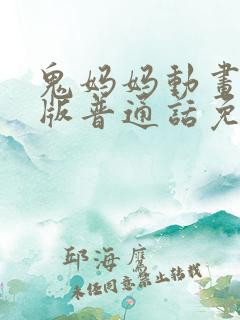 鬼妈妈動畫
版普通話免
邱海鷹
未经同意禁止转载